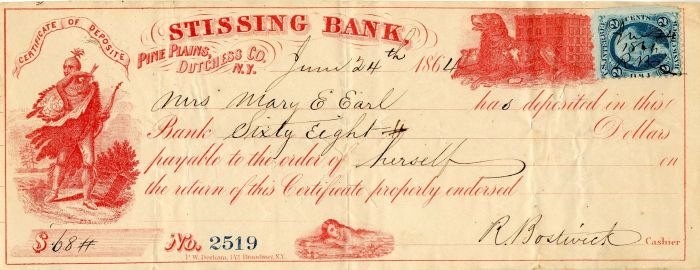 CERTIFICATE OF DEPOSITE
STISSING BANK,
PINE PLAINS,
DUTCHESS CO.
N.Y.
June 24th 1864
Mrs Mary E Earl has deposited in this
Bank Sixty Eight # Dollars
payable to the order of herself on
the return of this Certificate properly endorsed
R. Bostwick Cashier
$ 68 #
No. 2519